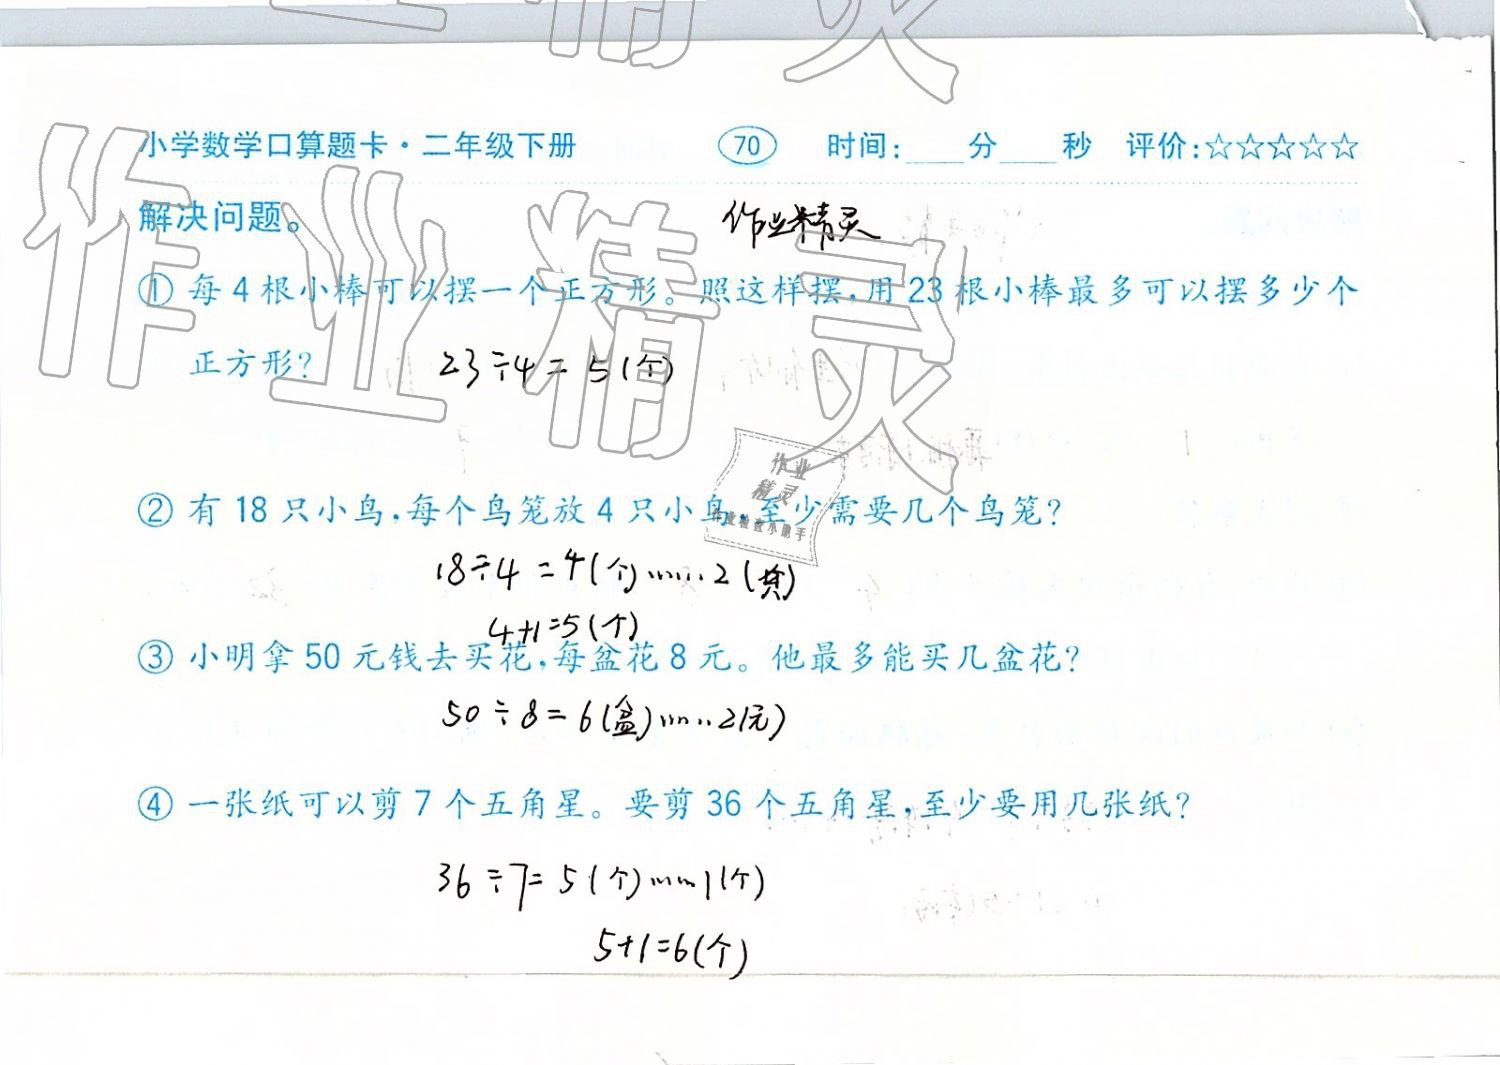 小学数学口算题卡·二年级下册 70 时间:____分____秒 评价:☆☆☆☆☆
解决问题。 作业精灵
① 每4根小棒可以摆一个正方形。照这样摆,用23根小棒最多可以摆多少个
正方形? 23÷4= 5(个)
② 有18只小鸟,每个鸟笼放4只小鸟,至少需要几个鸟笼?
18÷4=4(个)……2(只)
4+1=5(个)
③ 小明拿50元钱去买花,每盆花8元。他最多能买几盆花?
50÷8=6(盆)……2(元)
④ 一张纸可以剪7个五角星。要剪36个五角星,至少要用几张纸?
36÷7=5(个)……1(个)
5+1=6(个)
作业精灵
作业
精灵
作业检查小助手